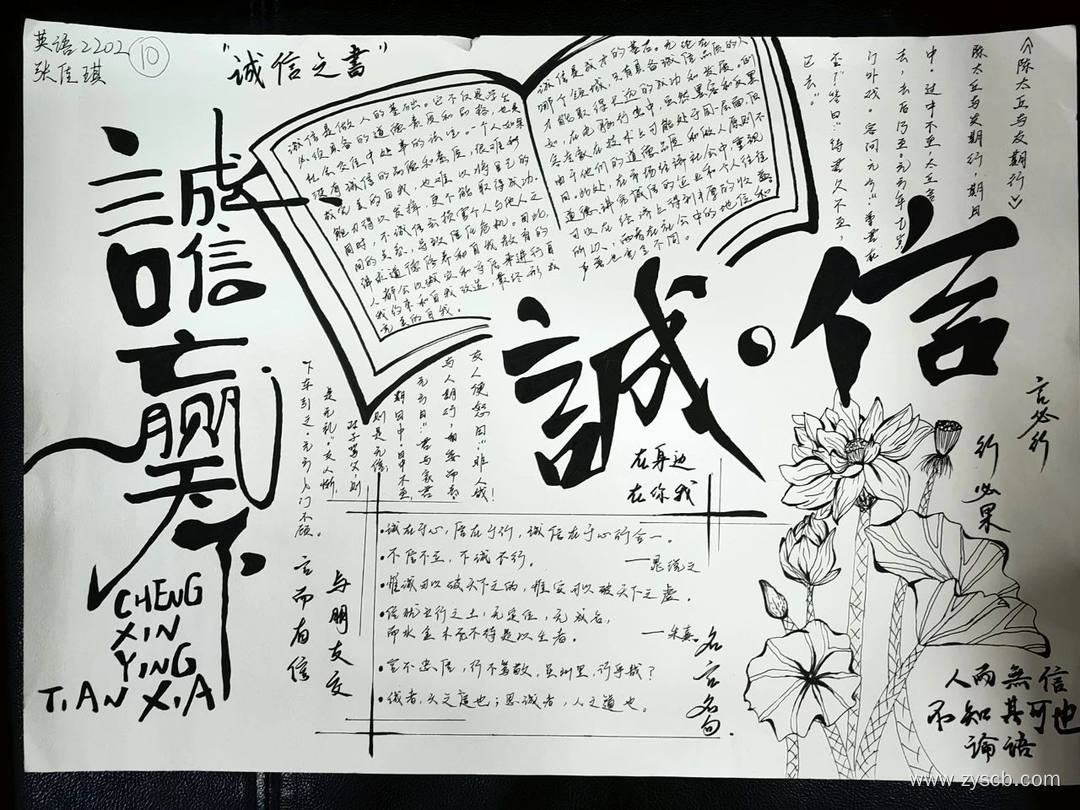 英语2202
张佳琪
10
"诚信之書"
誠信贏天下
CHENG
XIN
YING
TIAN XIA
诚信是做人的基础。它不仅是学生
必须具备的道德素质和品格，也是
社会交往中处事的法宝。一个人如果
没有诚信的品德和素质，很难形
成完美的自我，也难以将自己的
能力得以发挥，更不能取得成功。
同时，不诚信会损害个人与他人之
间的关系，导致信任危机。因此，
人都会以诚实和守信来进行自
我约束和自我改造，最终形成
完美的自我。
诚信是成才的基石。无论在
哪个领域，只有具备诚信品质的人
才能取得长远的成功和发展。例
同。此外，在市场经济社会中，重视
道德、讲究诚信的企业和个人往往
可以在经济上得到丰厚的收益。
所以，两者在社会中的地位和
声誉也完全不同。
《陈太丘与友期行》
陈太丘与友期行，期日
中。过中不至，太丘舍
去，去后乃至。元方时年七岁，
门外戏。客问元方："尊君在
不？"答曰："待君久不至，
已去。"
友人便怒曰："非人哉！
与人期行，相委而去。"
元方曰："君与家君
期日中。日中不至，
则是无信；
对子骂父，则
是无礼。"友人惭，
下车引之，元方入门不顾。
誠·信
在身边
在你我
言必行
行必果
与朋友交
言而有信
•诚在于心，信在于行，诚信在于心行合一。
•不信不立，不诚不行。
——晁说之
•惟诚可以破天下之伪，惟实可以破天下之虚。
•信犹五行之土，无定位，无成名，
而水金木无不待是以生者。
——朱熹
•言不忠信，行不笃敬，虽州里，行乎哉？
•诚者，天之道也；思诚者，人之道也。
名言名句
人而無信
不知其可也
論語
www.zyscb.com